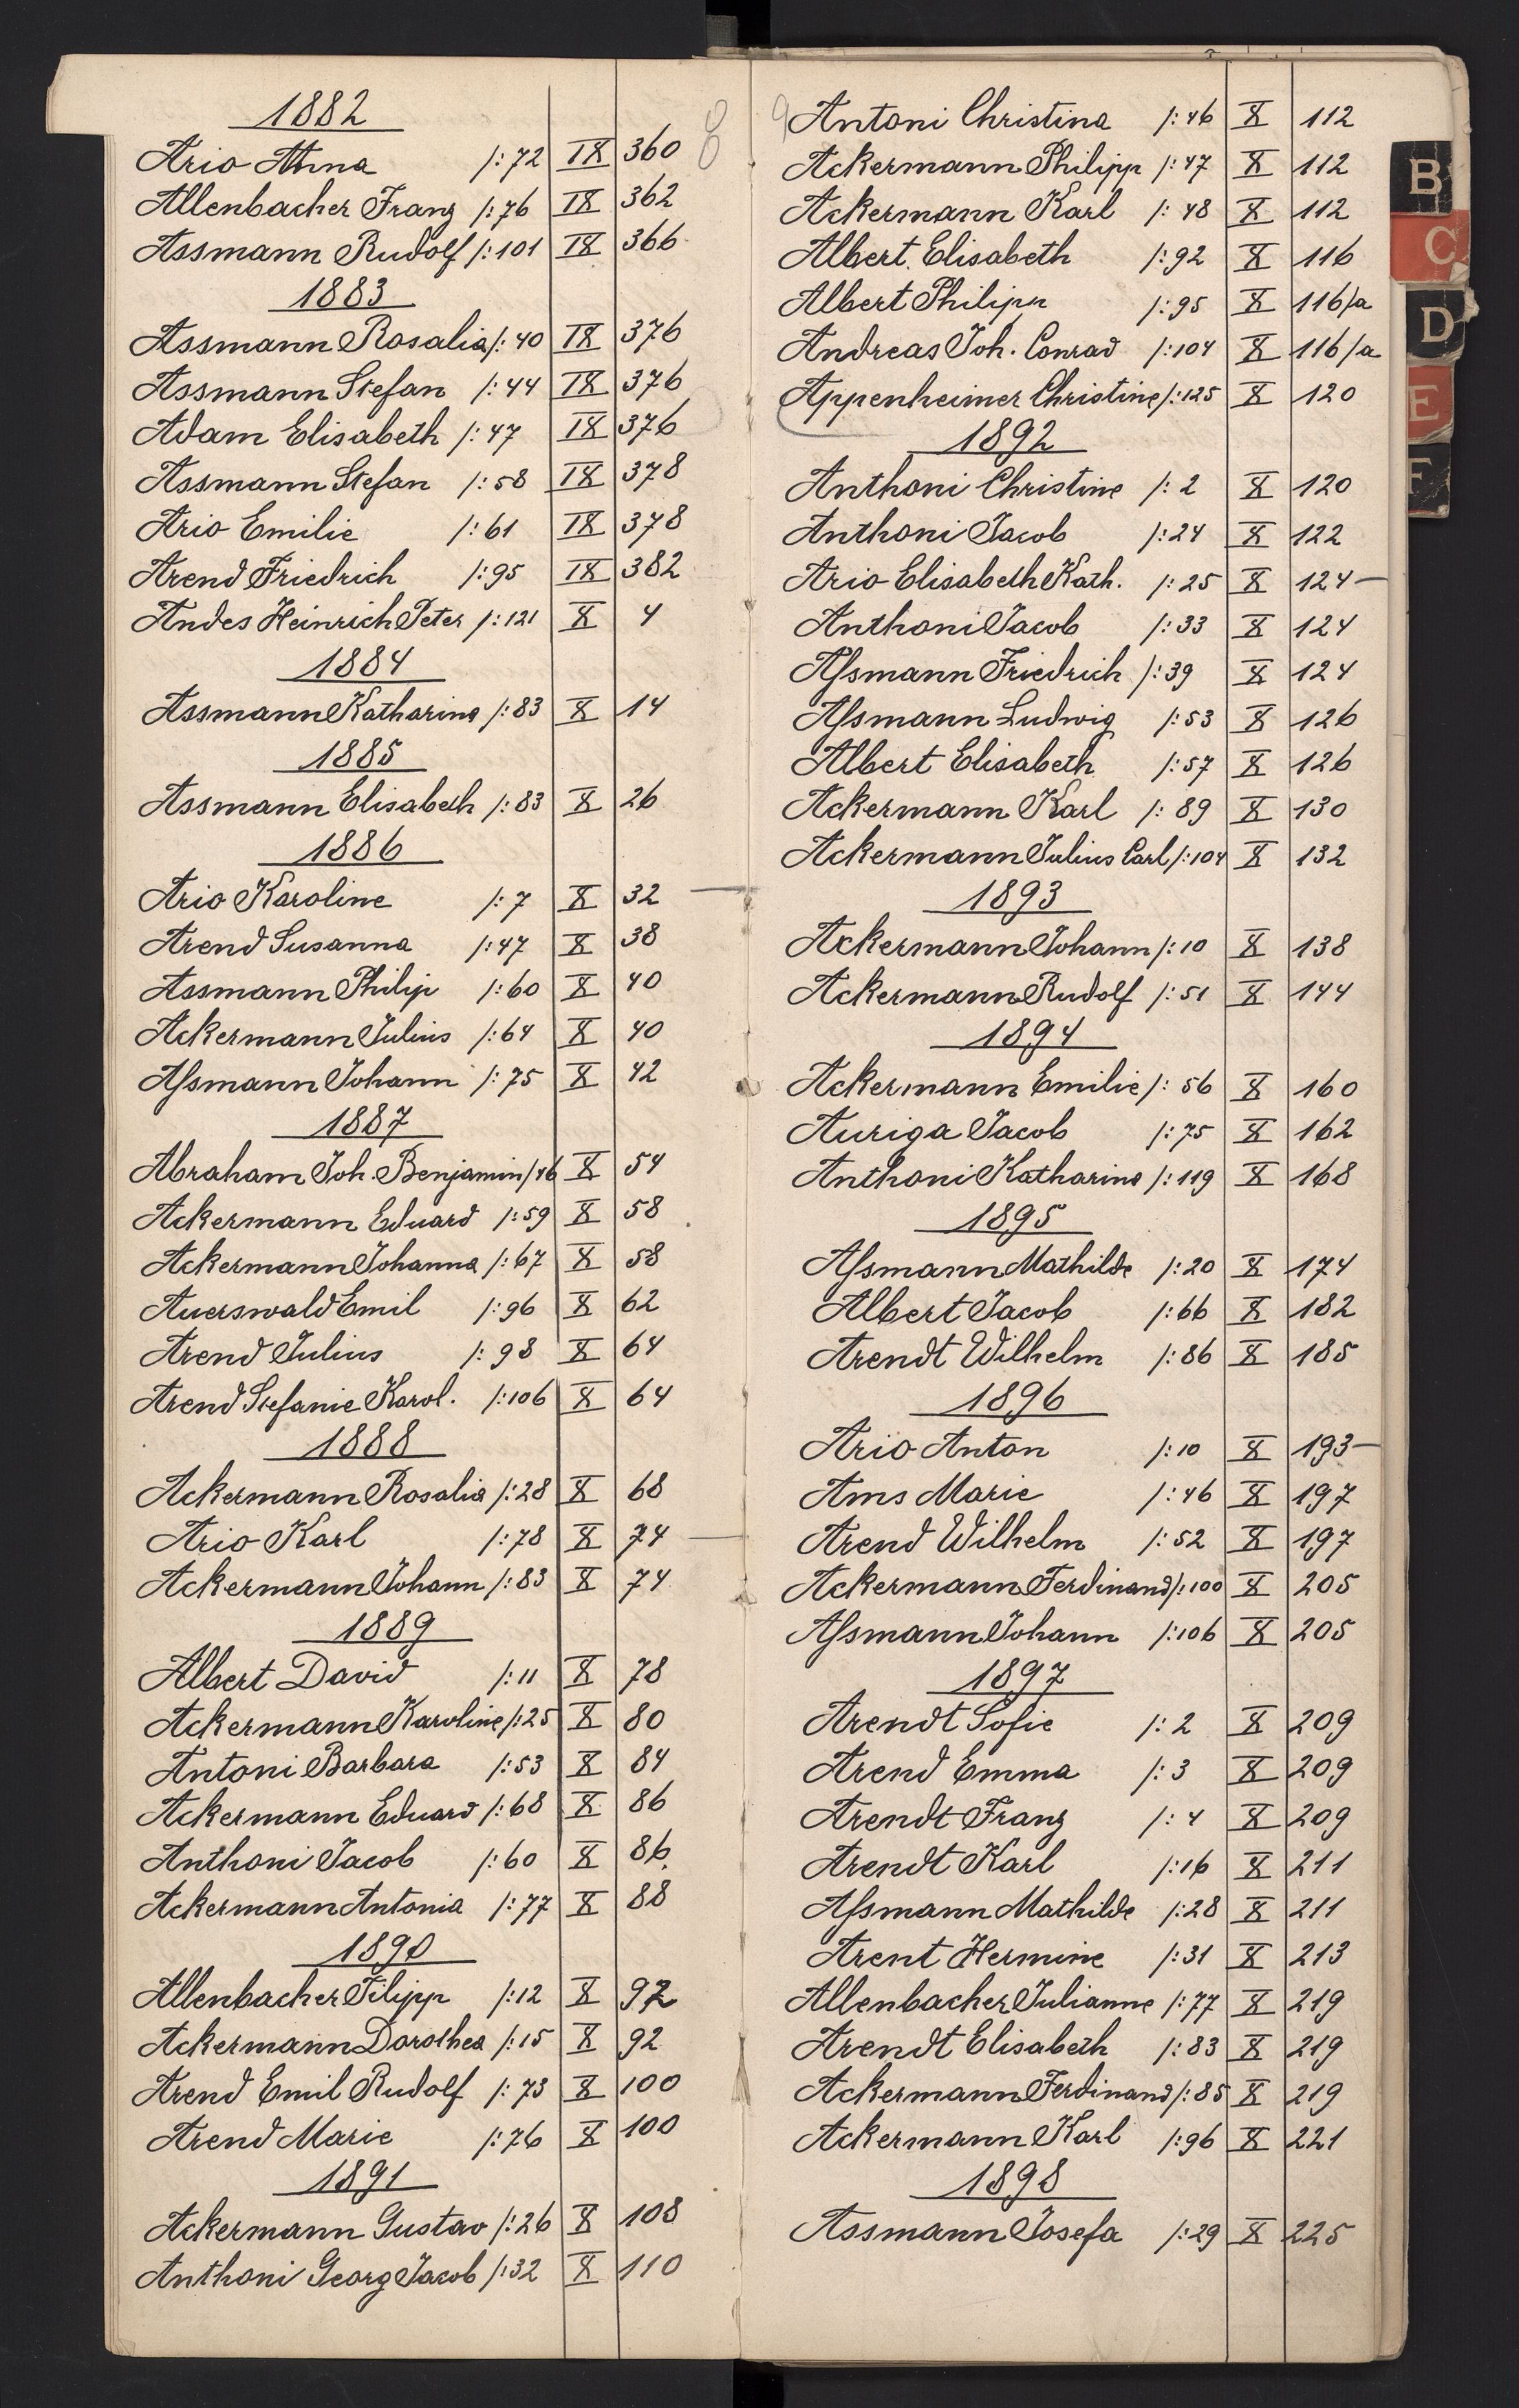 1882
Ario Anna /: 72 IX 360
Allenbacher Franz /: 76 IX 362
Assmann Rudolf /: 101 IX 366
1883
Assmann Rosalia /: 40 IX 376
Assmann Stefan /: 44 IX 376
Adam Elisabeth /: 47 IX 376
Assmann Stefan /: 58 IX 378
Ario Emilie /: 61 IX 378
Arend Friedrich /: 95 IX 382
Andes Heinrich Peter /: 121 X 4
1884
Assmann Katharina /: 83 X 14
1885
Assmann Elisabeth /: 83 X 26
1886
Ario Karoline /: 7 X 32 —
Arend Susanna /: 47 X 38
Assmann Philip /: 60 X 40
Ackermann Julius /: 64 X 40
Aſsmann Johann /: 75 X 42
1887
Abraham Joh. Benjamin /46 X 54
Ackermann Eduard /: 59 X 58
Ackermann Johanna /: 67 X 58
Auerswald Emil /: 96 X 62
Arend Julius /: 98 X 64
Arend Stefanie Karol. /: 106 X 64
1888
Ackermann Rosalia /: 28 X 68
Ario Karl /: 78 X 74 —
Ackermann Johann /: 83 X 74
1889
Albert David /: 11 X 78
Ackermann Karoline /: 25 X 80
Antoni Barbara /: 53 X 84
Ackermann Eduard /: 68 X 86
Anthoni Jacob /: 60 X 86
Ackermann Antonia /: 77 X 88
1890
Allenbacher Filipp /: 12 X 92
Ackermann Dorothea /: 15 X 92
Arend Emil Rudolf /: 73 X 100
Arend Marie /: 76 X 100
1891
Ackermann Gustav /: 26 X 108
Anthoni Georg Jacob /: 32 X 110
8
9
Antoni Christina /: 46 X 112
Ackermann Philipp /: 47 X 112
Ackermann Karl /: 48 X 112
Albert Elisabeth /: 92 X 116
Albert Philipp /: 95 X 116/a
Andreas Joh. Conrad /: 104 X 116/a
Appenheimer Christine /: 125 X 120
1892
Anthoni Christine /: 2 X 120
Anthoni Jacob /: 24 X 122
Ario Elisabeth Kath. /: 25 X 124 —
Anthoni Jacob /: 33 X 124
Aſsmann Friedrich /: 39 X 124
Aſsmann Ludwig /: 53 X 126
Albert Elisabeth /: 57 X 126
Ackermann Karl /: 89 X 130
Ackermann Julius Carl /: 104 X 132
1893
Ackermann Johann /: 10 X 138
Ackermann Rudolf /: 51 X 144
1894
Ackermann Emilie /: 56 X 160
Auriga Jacob /: 75 X 162
Anthoni Katharina /: 119 X 168
1895
Aſsmann Mathilde /: 20 X 174
Albert Jacob /: 66 X 182
Arendt Wilhelm /: 86 X 185
1896
Ario Anton /: 10 X 193 —
Ams Marie /: 46 X 197
Arend Wilhelm /: 52 X 197
Ackermann Ferdinand /: 100 X 205
Aſsmann Johann /: 106 X 205
1897
Arendt Sofie /: 2 X 209
Arend Emma /: 3 X 209
Arendt Franz /: 4 X 209
Arendt Karl /: 16 X 211
Aſsmann Mathilde /: 28 X 211
Arent Hermine /: 31 X 213
Allenbacher Julianne /: 77 X 219
Arendt Elisabeth /: 83 X 219
Ackermann Ferdinand /: 85 X 219
Ackermann Karl /: 96 X 221
1898
Assmann Josefa /: 29 X 225
B
C
D
E
F